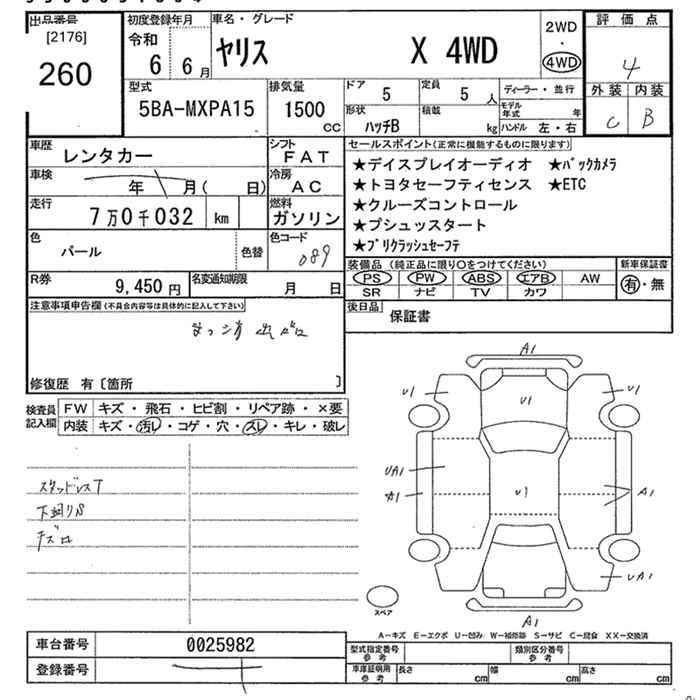 出品番号
[2176]
260
初度登録年月
令和
6 6 月
車名・グレード
ヤリス X 4WD
2WD
・
4WD
評価点
4
外装 内装
C B
型式
5BA-MXPA15
排気量
1500
CC
ドア
5
定員
5 人
形状
ハッチB
積載
kg
ディーラー・並行
モデル年式 年
ハンドル 左・右
車歴
レンタカー
シフト
FAT
車検
年 月( 日)
冷房
AC
走行
7万0千032 km
燃料
ガソリン
色
パール
色替
色コード
089
R券
9,450 円
名変通知期限
月 日
セールスポイント(正常に機能するものに限ります)
★ディスプレイオーディオ ★バックカメラ
★トヨタセーフティセンス ★ETC
★クルーズコントロール
★プシュッスタート
★プリクラッシュセーフテ
装備品 (純正品に限り○をつけてください)
PS PW ABS エアB AW
SR ナビ TV カワ
新車保証書
有・無
後日品
保証書
注意事項申告欄(不具合内容等は具体的に記入して下さい)
修復歴 有〔箇所 〕
検査員記入欄
FW キズ・飛石・ヒビ割・リペア跡・×要
内装 キズ・汚レ・コゲ・穴・スレ・キレ・破レ
スタッドレスT
下廻りS
キズロ
A1
U1
U1
U1
UA1
A1
U1
A1
UA1
A1
スペア
A-キズ E-エクボ U-凹み W-補修跡 S-サビ C-腐食 XX-交換済
車台番号
0025982
登録番号
型式指定番号参考
類別区分番号参考
車庫証明用参考
長さ cm
幅 cm
高さ cm